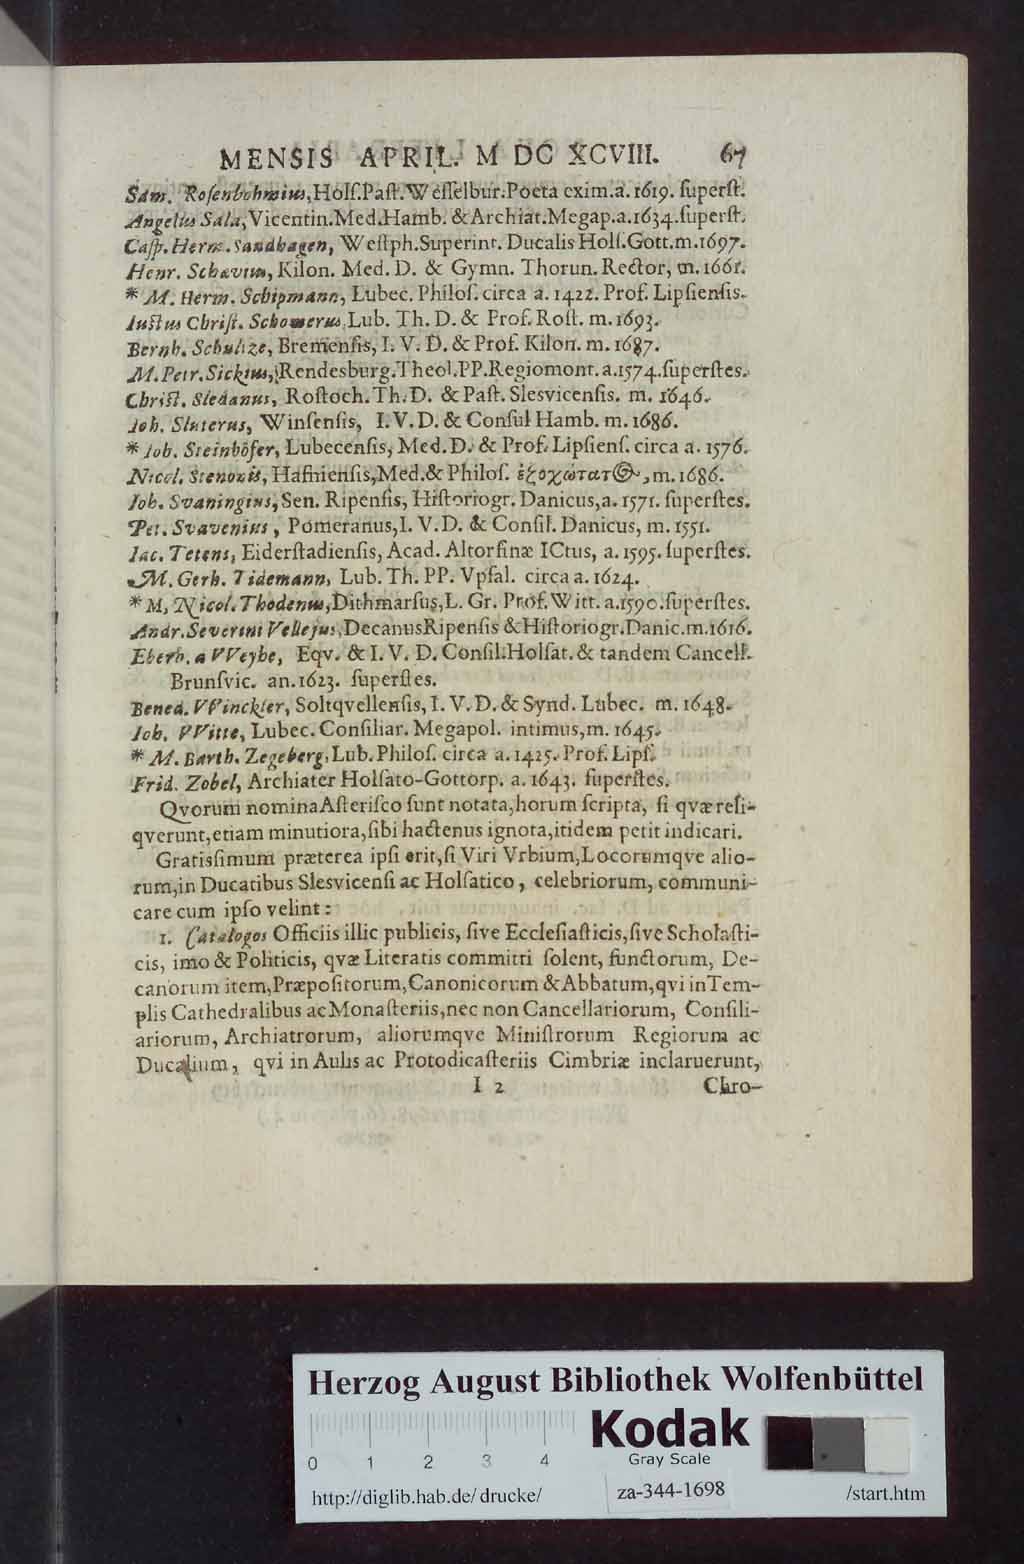 MENSIS APRIL. M DC XCVIII. 67
Sam. Rosenbohmius, Hols.Past.Wesselbur.Poeta exim.a.1619. superst.
Angelus Sala, Vicentin.Med.Hamb. & Archiat.Megap.a.1634.superst.
Casp. Herm. Sandhagen, Westph.Superint. Ducalis Hols.Gott.m.1697.
Henr. Schævius, Kilon. Med. D. & Gymn. Thorun. Rector, m. 1661.
* M. Herm. Schipmann, Lubec. Philos. circa a. 1422. Prof. Lipsiensis.
Iustus Christ. Schomerus, Lub. Th. D. & Prof. Rost. m. 1693.
Bernh. Schultze, Bremensis, I. V. D. & Prof. Kilon. m. 1687.
M. Petr. Sickius, Rendesburg.Theol.PP.Regiomont. a.1574.superstes.
Christ. Sledanus, Rostoch. Th. D. & Past. Slesvicensis. m. 1646.
Joh. Sluterus, Winsensis, I. V. D. & Consul Hamb. m. 1686.
* Joh. Steinhöfer, Lubecensis, Med. D. & Prof. Lipsiens. circa a. 1576.
Nicol. Stenonis, Hafniensis, Med.& Philos. ἐξοχώτατ@, m. 1686.
Joh. Svaningius, Sen. Ripensis, Historiogr. Danicus, a. 1571. superstes.
Pet. Svavenius, Pomeranus, I. V. D. & Consil. Danicus, m. 1551.
Iac. Tetens, Eiderstadiensis, Acad. Altorfinæ ICtus, a. 1595. superstes.
M. Gerh. Tidemann, Lub. Th. PP. Vpsal. circa a. 1624.
* M, Nicol. Thodenus, Dithmarsus, L. Gr. Prof. Witt. a.1590.superstes.
Andr. Severini Vellejus, Decanus Ripensis & Historiogr.Danic.m.1616.
Eberh. a VVeyhe, Eqv. & I. V. D. Consil.Holsat. & tandem Cancell.
Brunsvic. an. 1623. superstes.
Bened. VVinckler, Soltqvellensis, I. V. D. & Synd. Lubec. m. 1648.
Joh. VVitte, Lubec. Consiliar. Megapol. intimus, m. 1645.
* M. Barth. Zegeberg, Lub. Philos. circa a. 1425. Prof. Lips.
Frid. Zobel, Archiater Holsato-Gottorp. a. 1643. superstes.
Qvorum nomina Asterisco sunt notata, horum scripta, si qvæ resi-
qverunt, etiam minutiora, sibi hactenus ignota, itidem petit indicari.
Gratissimum præterea ipsi erit, si Viri Vrbium, Locorumqve alio-
rum, in Ducatibus Slesvicensi ac Holsatico, celebriorum, communi-
care cum ipso velint:
1. Catalogos Officiis illic publicis, sive Ecclesiasticis, sive Scholasti-
cis, imo & Politicis, qvæ Literatis committi solent, functorum, De-
canorum item, Præpositorum, Canonicorum & Abbatum, qvi in Tem-
plis Cathedralibus ac Monasteriis, nec non Cancellariorum, Consili-
ariorum, Archiatrorum, aliorumqve Ministrorum Regiorum ac
Ducalium, qvi in Aulis ac Protodicasteriis Cimbriæ inclaruerunt,
I 2 Chro-
Herzog August Bibliothek Wolfenbüttel
0 1 2 3 4
Kodak
Gray Scale
http://diglib.hab.de/drucke/ za-344-1698 /start.htm